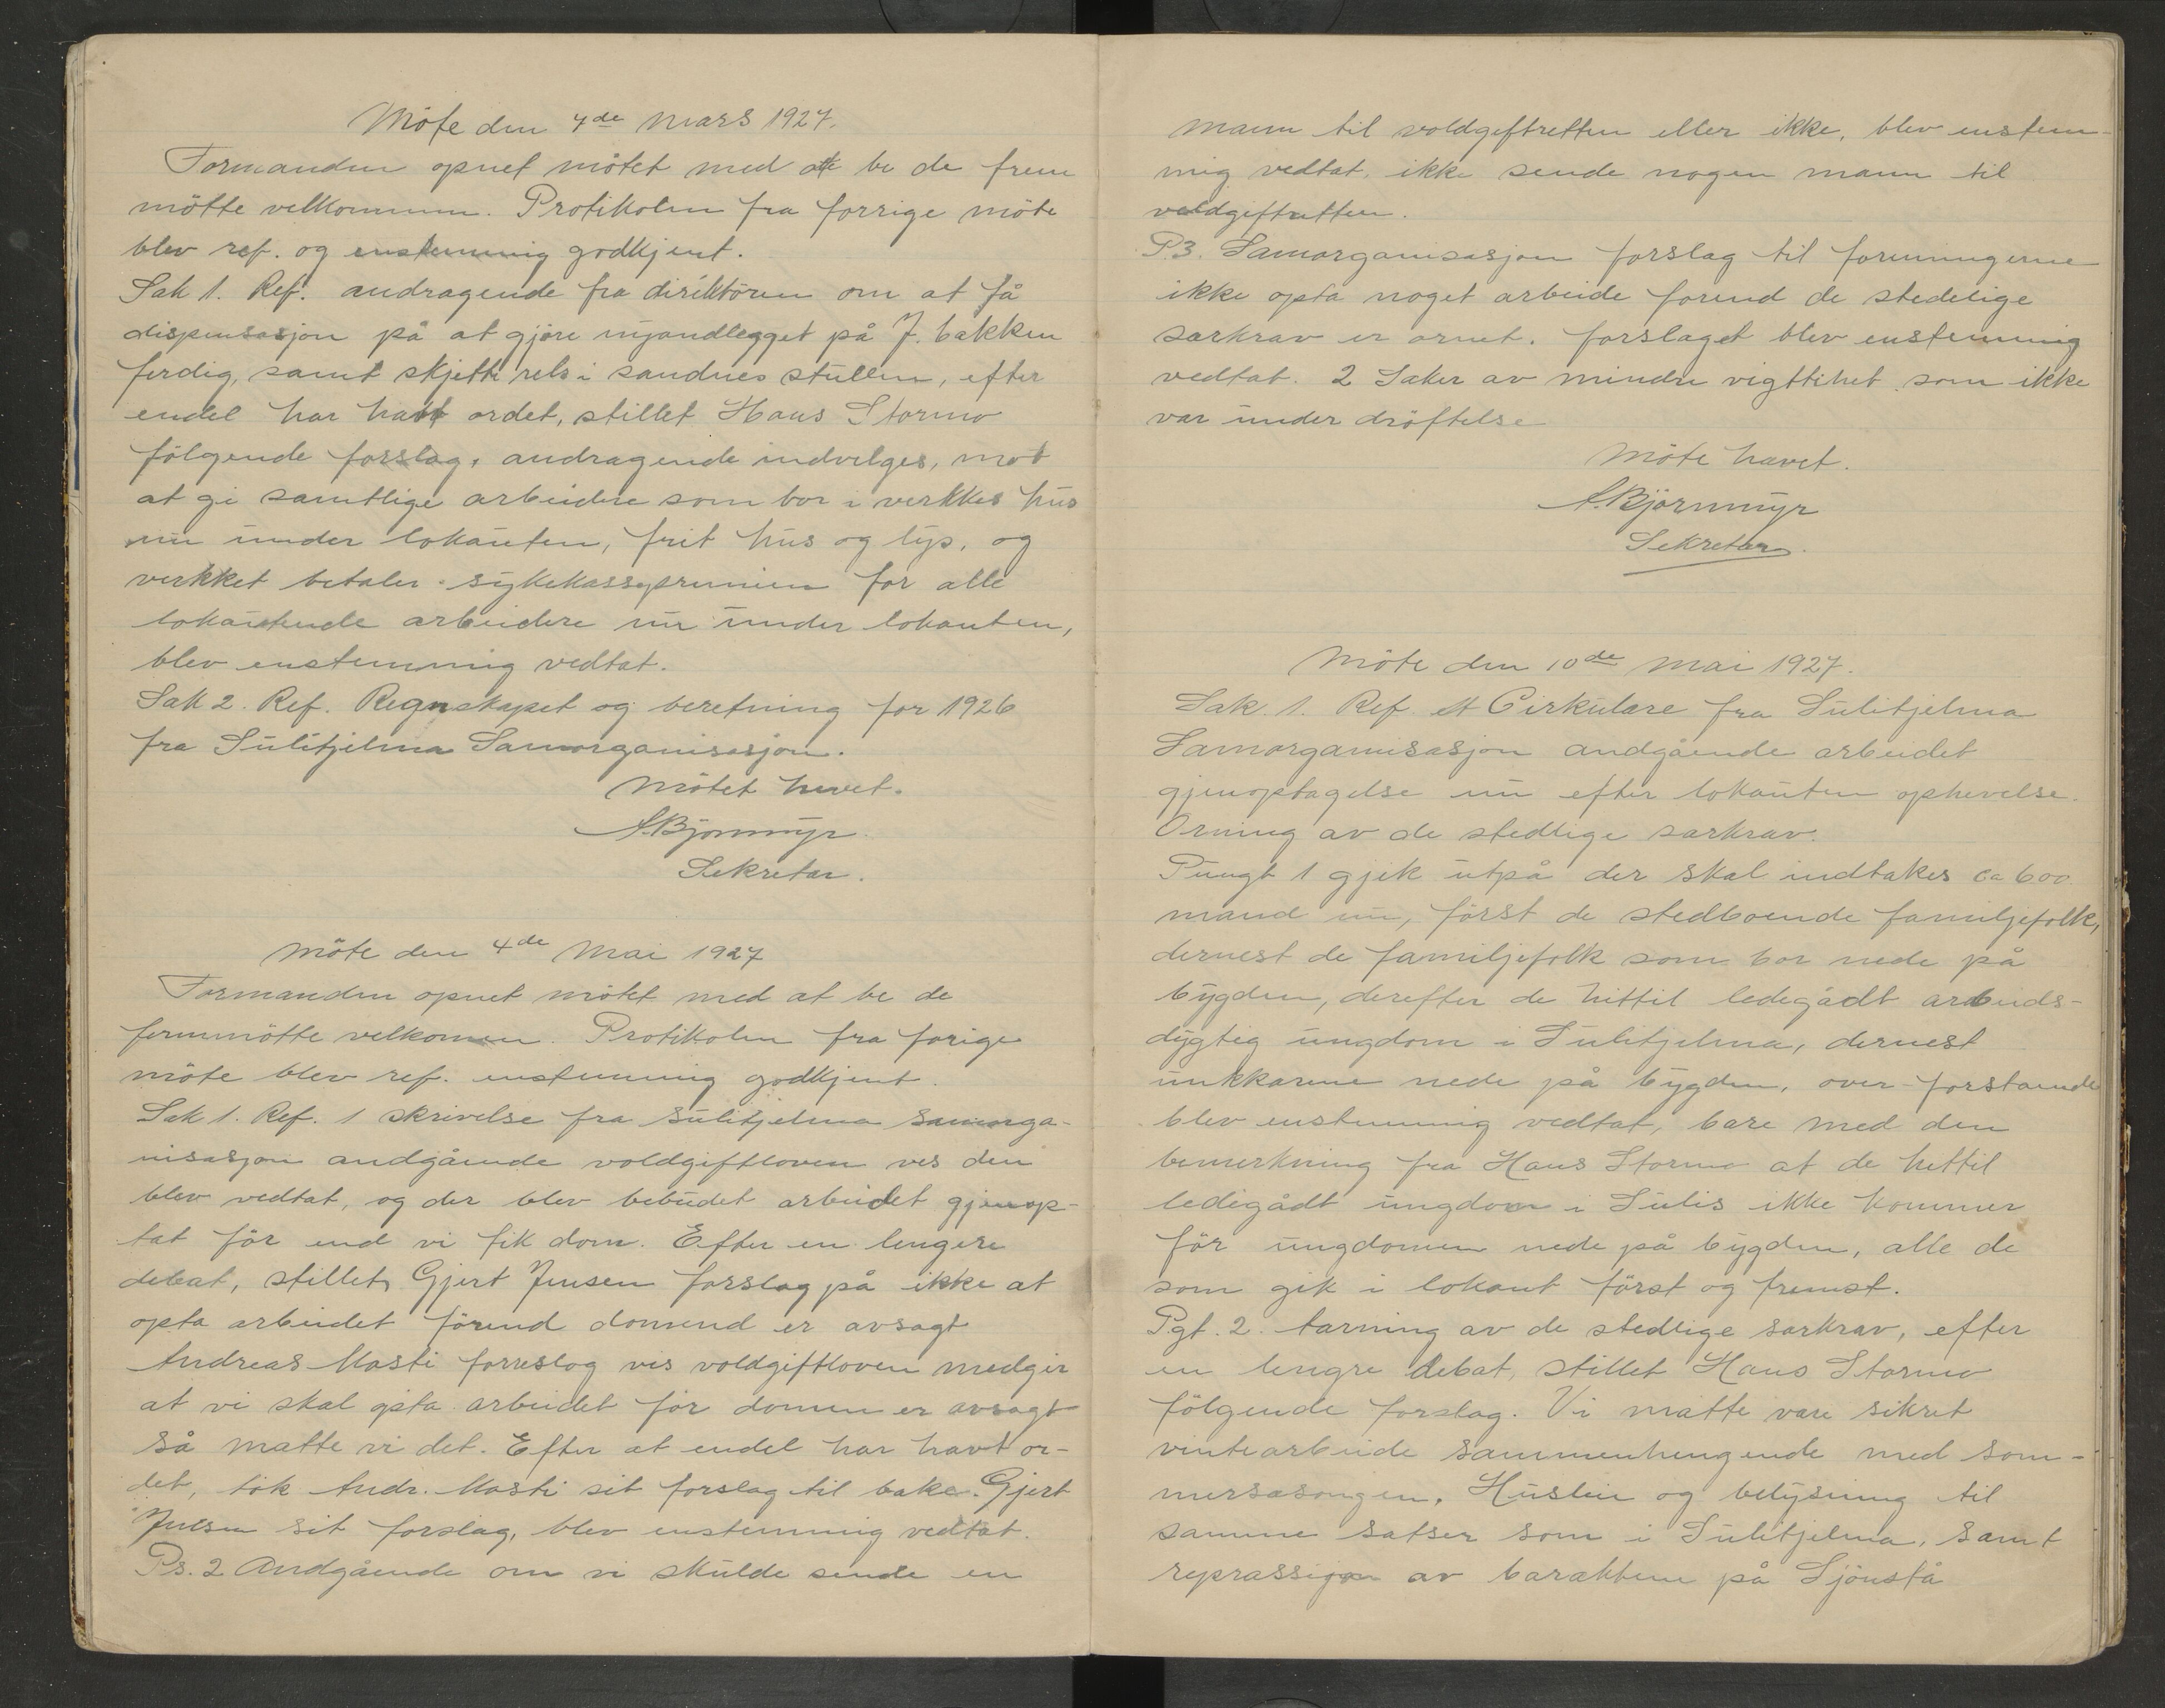 Möte den 4de Mars 1927.
Formanden opnet mötet med at be de frem
mötte velkommen. Protikolen fra forrige möte
blev ref. og enstemmig godkjent.
Sak 1. Ref. andragende fra diriktören om at få
dispensasjon på at gjöre nyandlegget på J. bakken
ferdig, samt skjette rels i sandnes stullen, efter
endel har havt ordet, stillet Hans Stormo
fölgende forslag, andragende indvilges, mot
at gi samtlige arbeidere som bor i verkkes hus
nu under lokauten, frit hus og lys, og
verkket betaler sykekassepremien for alle
lokautende arbeidere nu under lokauten,
blev enstemmig vedtat.
Sak 2. Ref. Regnskapet og beretning for 1926
fra Sulitjelma Samorganisasjon.
Mötet hevet.
A. Bjørnmyr.
Sekretær.
Möte den 4de Mai 1927
Formanden opnet mötet med at be de
fremmötte velkomen. Protikolen fra forige
möte blev ref. enstemmig godkjent.
Sak 1. Ref. 1 skrivelse fra Sulitjelma samorga-
nisasjon andgående voldgiftloven ves den
blev vedtat, og der blev bebudet arbeidet gjenop-
tat för end vi fik dom. Efter en lengere
debat, stillet Gjert Jensen forslag på ikke at
opta arbeidet förend domend er avsagt
Andreas Mosti forreslog vis voldgiftloven medgir
at vi skal opta arbeidet för domen er avsagt
så matte vi det. Efter at endel har havt or-
det, tok Andr. Mosti sit forslag til bake. Gjert
Jensen sit forslag, blev enstemmig vedtat.
Ps. 2 Andgående om vi skulde sende en
mann til voldgiftretten eller ikke, blev enstem-
mig vedtat, ikke sende nogen mann til
voldgiftretten.
P3. Samorganisasjon forslag til foreningerne
ikke opta noget arbeide forend de stedelige
sarkrav er ornet. forslaget blev enstemmig
vedtat. 2 Saker av mindre vigttihet som ikke
var under dröftelse
Möte havet.
A. Björnmyr
Sekretær.
Möte den 10de Mai 1927.
Sak. 1. Ref. et Cirkulære fra Sulitjelma
Samorganisasjon andgående arbeidet
gjenoptagelse nu efter lokauten ophevelse.
Orning av de stedlige sarkrav.
Pungt 1 gjik utpå der skal indtakes ca 600
mand nu, först de stedboende familjefolk,
dernest de familjefolk som bor nede på
bygden, derefter de hittil ledegådt arbeids-
dygtig ungdom i Sulitjelma, dernest
unkkarene nede på bygden, over-forstaende
blev enstemmig vedtat, bare med den
bemerkning fra Hans Stormo at de hittil
ledigådt ungdom i Sulis ikke kommer
för ungdomen nede på bygden, alle de
som gik i lokaut först og fremst.
Pgt. 2. tarning av de stedlige sarkrav, efter
en lengre debat, stillet Hans Stormo
fölgende forslag. Vi matte vare sikret
vintearbeide sammenhengende med som-
mersæsongen. Husleie og belysning til
samme satser som i Sulitjelma, samt
reprassijon av barakkene på Sjönstå